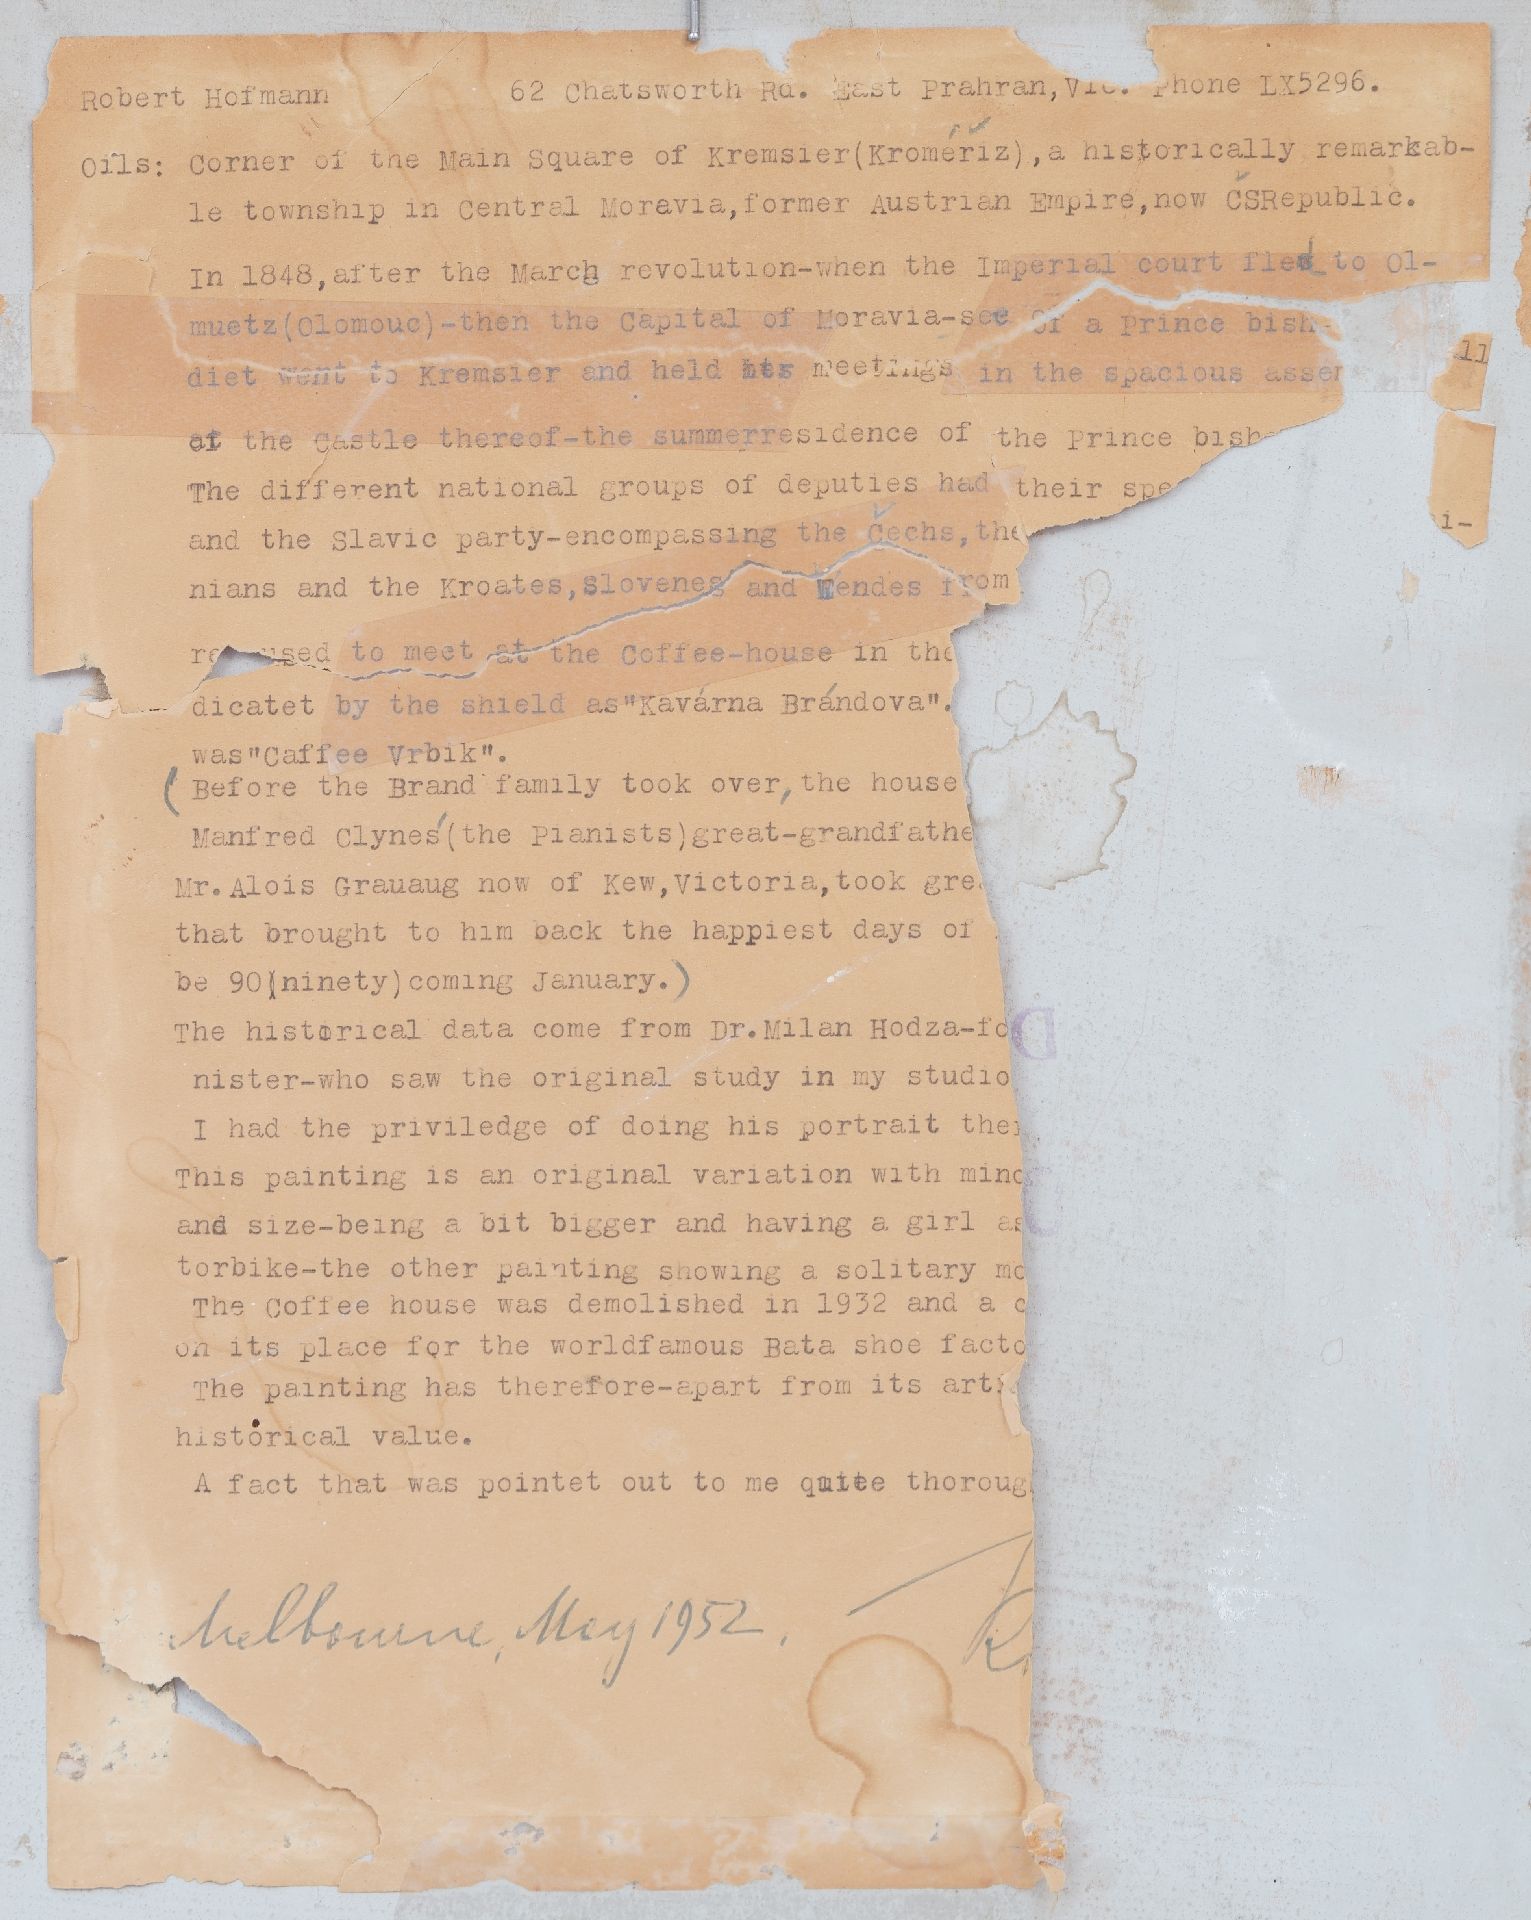 Robert Hofmann 62 Chatsworth Rd. East Prahran,Vic. Phone LX5296.
Oils: Corner of the Main Square of Kremsier(Kroměříz),a historically remarkab-
le township in Central Moravia,former Austrian Empire,now ČSRepublic.
In 1848,after the March revolution-when the Imperial court fled to Ol-
muetz(Olomouc)-then the Capital of Moravia-see of a Prince bish-
diet went to Kremsier and held its meetings in the spacious assem ll
at the Castle thereof-the summerresidence of the Prince bish
The different national groups of deputies had their spe
and the Slavic party-encompassing the Čechs,the i-
nians and the Kroates,Slovenes and Wendes from
used to meet at the Coffee-house in the
dicatet by the shield as"Kavárna Brándova".
was"Caffee Vrbik".
(Before the Brand family took over,the house
Manfred Clynes'(the Pianists)great-grandfathe
Mr.Alois Grauaug now of Kew,Victoria,took grea
that brought to him back the happiest days of
be 90(ninety)coming January.)
The historical data come from Dr.Milan Hodza-fo
nister-who saw the original study in my studio
I had the priviledge of doing his portrait then
This painting is an original variation with mino
and size-being a bit bigger and having a girl as
torbike-the other painting showing a solitary mo
The Coffee house was demolished in 1932 and a c
on its place for the worldfamous Bata shoe facto
The painting has therefore-apart from its arti
historical value.
A fact that was pointet out to me quite thoroug
Melbourne, May 1952.